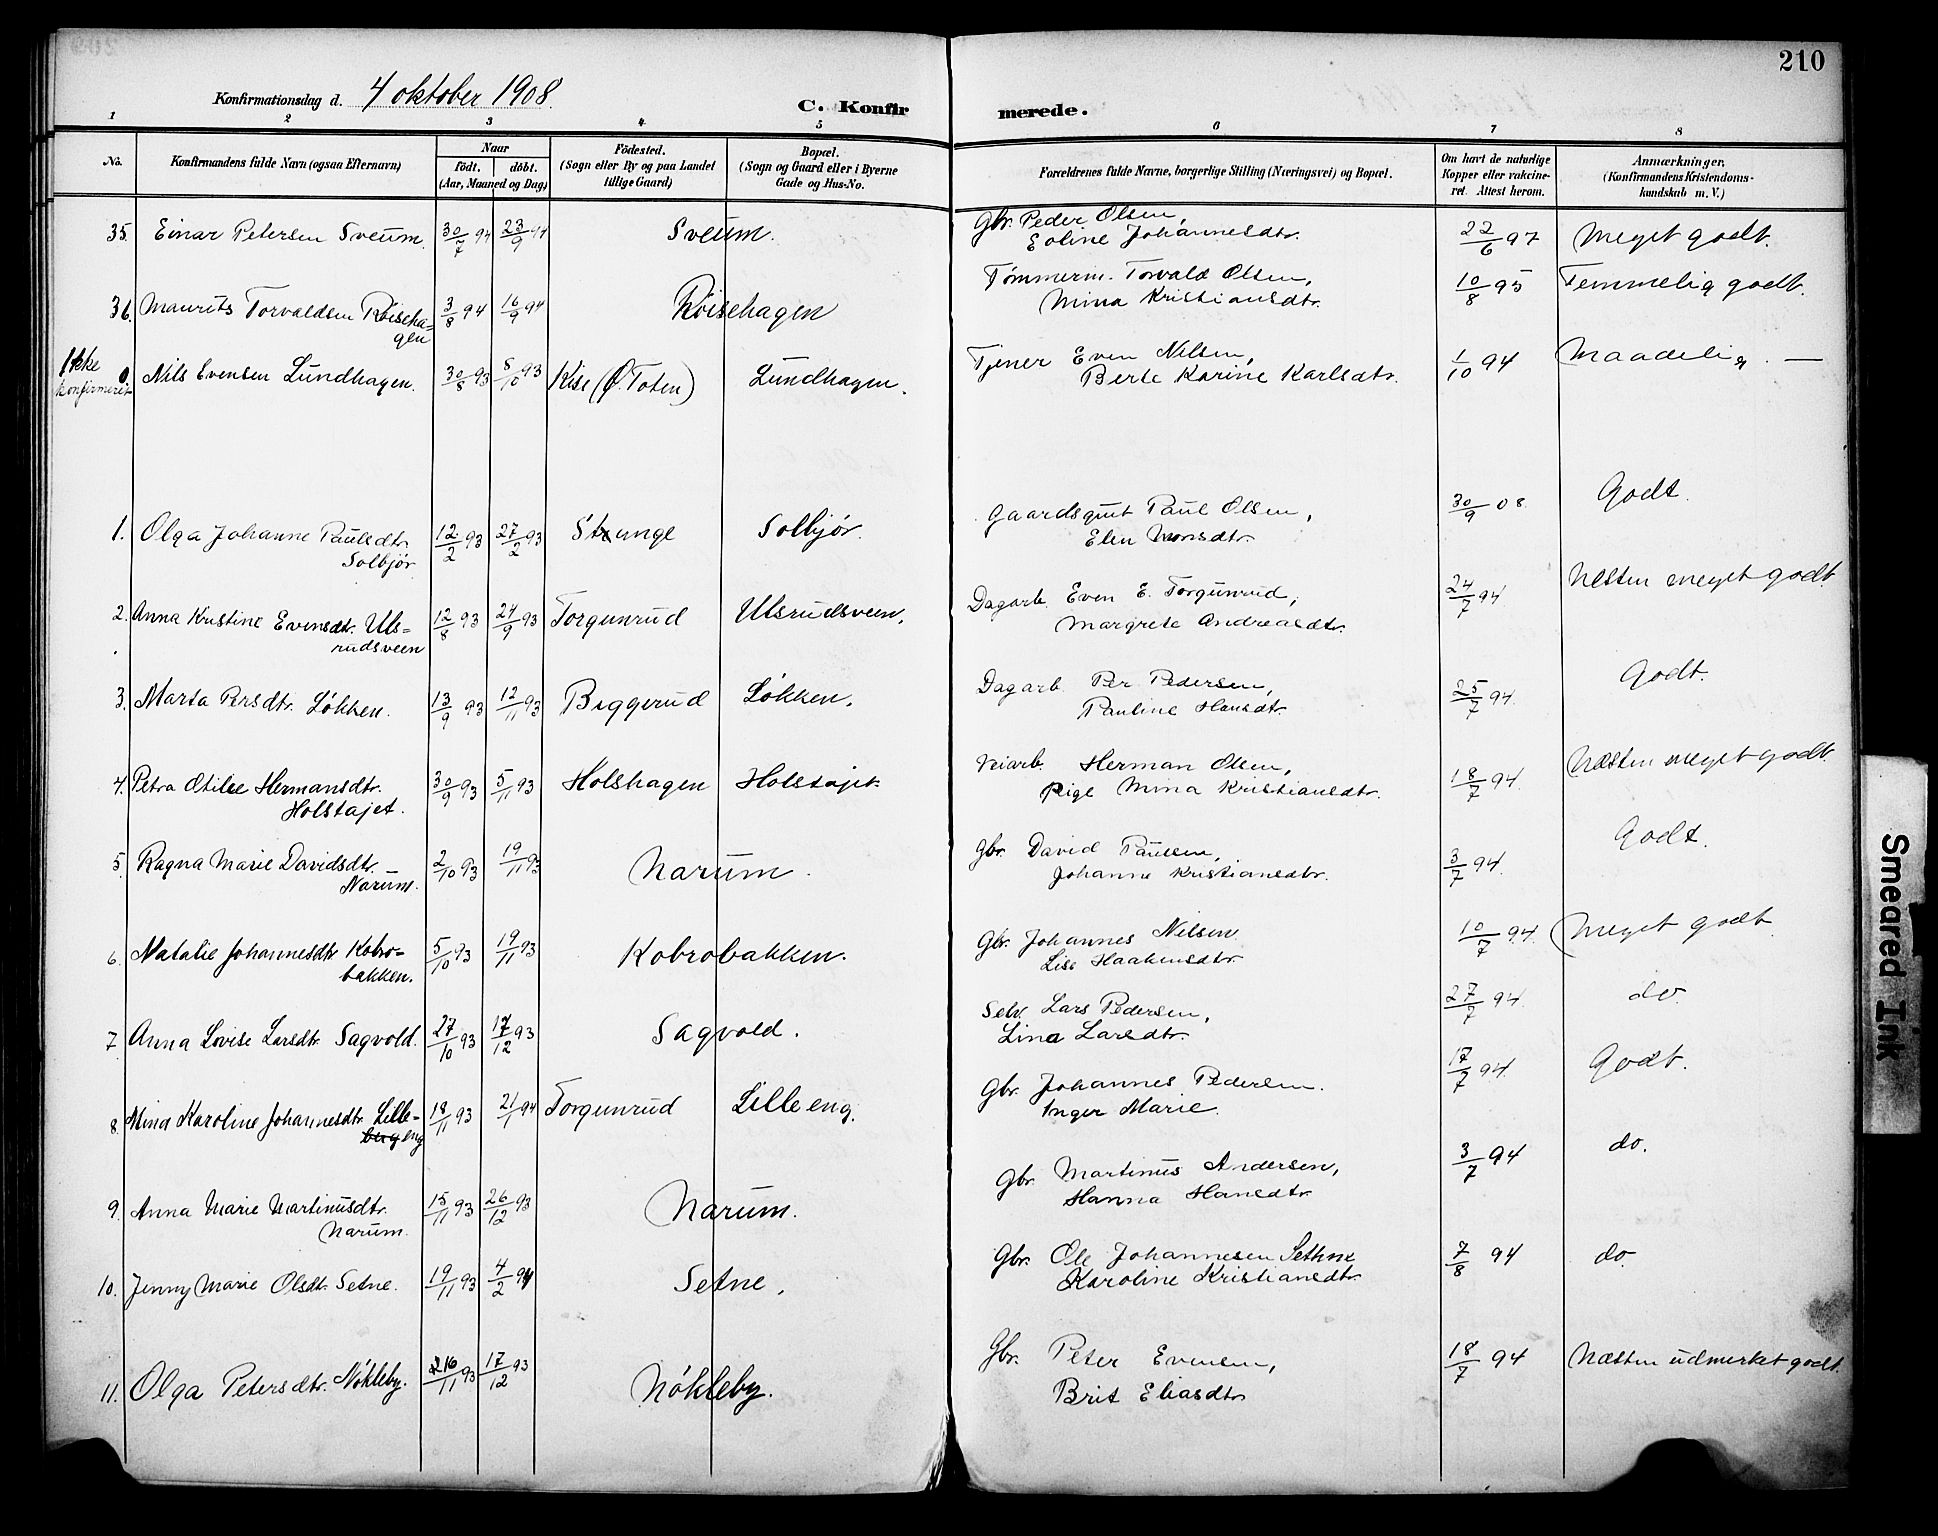 210
Konfirmationsdag d. 4 oktober 1908.
C. Konfirmerede.
1 2 3 4 5 6 7 8
No.
Konfirmandens fulde Navn (ogsaa Efternavn)
Naar
födt. döbt.
(Aar, Maaned og Dag)
Födested.
(Sogn eller By og paa Landet
tillige Gaard)
Bopæl.
(Sogn og Gaard eller i Byerne
Gade og Hus-No.
Forældrenes fulde Navne, borgerlige Stilling (Næringsvei) og Bopæl.
Om havt de naturlige
Kopper eller vakcine-
ret. Attest herom.
Anmærkninger,
(Konfirmandens Kristendoms-
kundskab m. V.)
35. Einar Petersen Sveum. 30/7 94 23/9 94 Sveum. Gbr. Peder Olsen, 22/6 97 Meget godt.
Eoline Johannesdtr.
36. Maurits Torvaldsen Röiseha=
gen 3/8 94 16/9 94 Röisehagen Tömmerm. Torvald Olsen, 10/8 95 Temmelig godt.
Mina Kristiansdtr.
Ikke
konfirmeret 0. Nils Evensen Lundhagen. 30/8 93 8/10 93 Kise (Ö. Toten) Lundhagen. Tjener Even Nilsen, 1/10 94 Maadelig. —
Berte Karine Karlsdtr.
1. Olga Johanne Paulsdtr.
Solbjör 12/2 93 27/2 93 Stunge Solbjör. Gaardsgut Paul Olsen, 30/9 08. Godt.
Elen Monsdtr.
2. Anna Kristine Evensdt. Uls=
rudsveen 12/8 93 24/9 93 Torgunrud Ulsrudsveen. Dagarb. Even E. Torgunrud, 24/7 94 Næsten meget godt.
Margrete Andreasdtr.
3. Marta Persdtr. Lökken. 13/9 93 12/11 93 Byggerud Lökken. Dagarb. Per Pedersen, 25/7 94. Godt.
Pauline Hansdtr.
4. Petra Otilie Hermansdtr.
Holstajet. 30/9 93 5/11 93 Holshagen Holstajet. Veiarb. Herman Olsen, 18/7 94. Næsten meget godt.
Pige Mina Kristiansdtr.
5. Ragna Marie Davidsdtr.
Narum. 2/10 93 19/11 93 Narum. Gbr. David Paulsen, 3/7 94. Godt.
Johanne Kristiansdtr.
6. Natalie Johannesdtr Kobro-
bakken. 5/10 93 19/11 93 Kobrobakken. Gbr. Johannes Nilsen. 10/7 94. Meget godt
Lise Haakensdtr.
7. Anna Lovise Larsdtr. Sagvold. 27/10 93 17/12 93 Sagvold. Selv. Lars Pedersen, 27/7 94. do.
Lina Larsdtr.
8. Mina Karoline Johannesdtr. Lille-
berg eng 18/11 93 21/1 94 Torgunrud Lilleeng. Gbr. Johannes Pedersen. 17/7 94. Godt.
Inger Marie.
9. Anna Marie Martinusdtr.
Narum. 15/11 93 26/12 93 Narum. Gbr. Martinus Andersen, 3/7 94 do.
Hanna Hansdtr
10. Jenny Marie Olsdtr. Setne. 19/11 93 4/2 94 Setne. Gbr. Ole Johannesen Sethne 7/8 94 do.
Karoline Kristiansdtr.
11. Olga Petersdtr. Nökleby. 26/11 93 17/12 93 Nökleby. Gbr. Peter Evensen, 18/7 94 Næsten udmerket godt.
Brit Eliasdtr
Smeared Ink